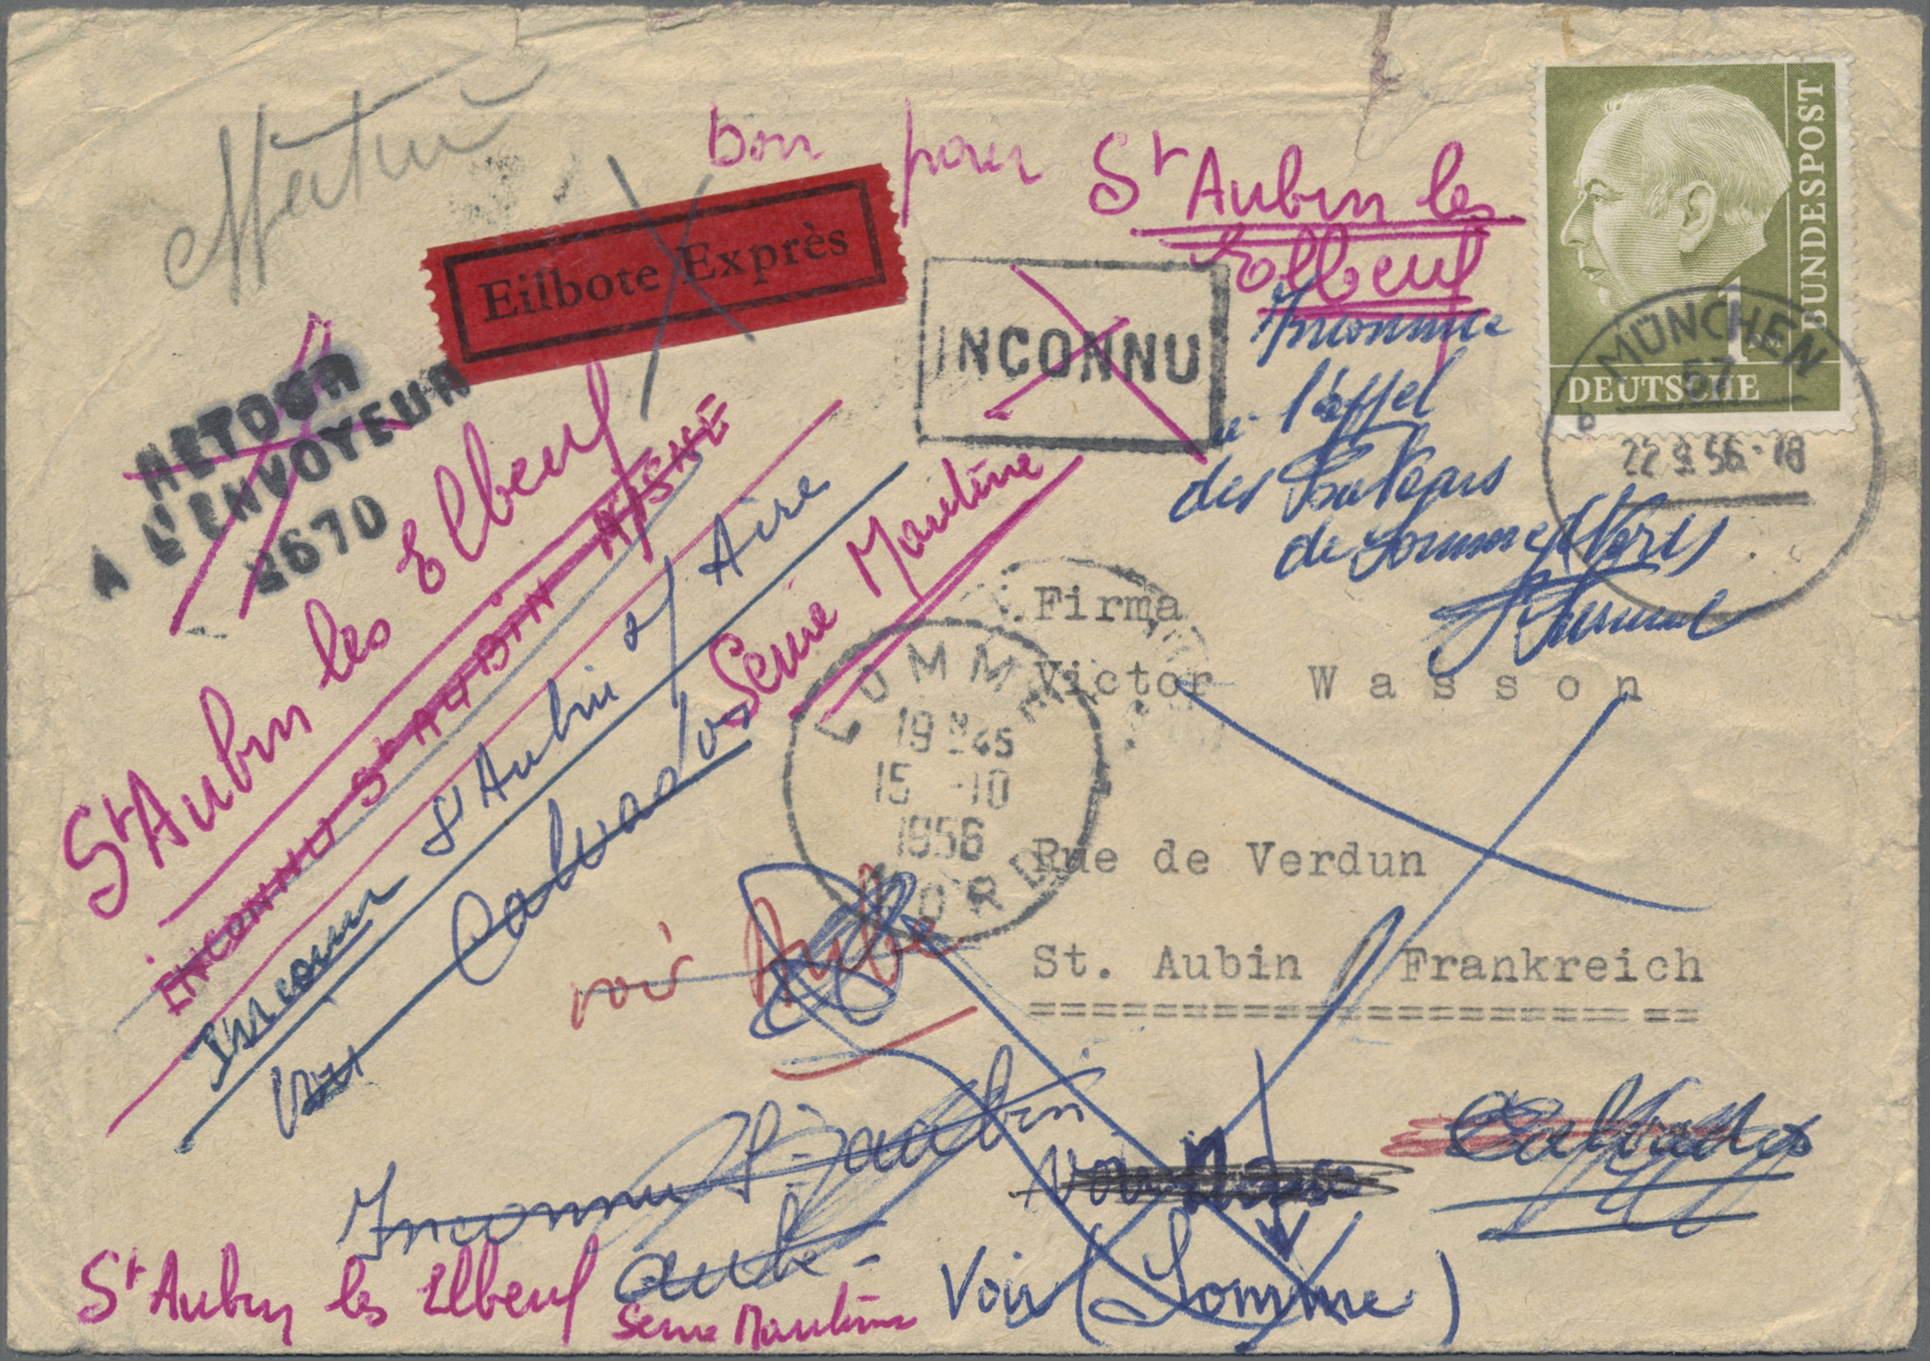 Retour
bon pour St Aubin les
Elbeuf
Eilbote Exprès
BUNDESPOST
1
DEUTSCHE
MÜNCHEN
22.9.56.-18
INCONNU
Inconnue
à l'appel
des facteurs
de Somme
RETOUR
A L'ENVOYEUR
2670
St Aubin les Elbeuf
Seine Maritime
INCONNU St AUBIN AISNE
Inconnu St Aubin s/ Aire
Voir Calvados
Firma
Victor Wasson
Rue de Verdun
St. Aubin / Frankreich
LOMME
19H45
15 -10
1956
NORD
voir Aube
Inconnu St Aubin
Aube
Voir
Calvados
St Aubin les Elbeuf
Seine Maritime
Voir (Somme)